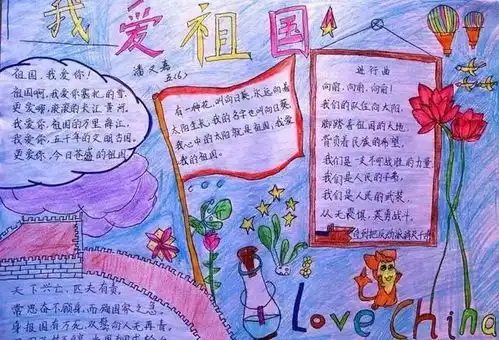 我爱祖国
潘又嘉
五(6)
祖国,我爱你!
祖国啊,我爱你
更爱你滚滚的长江黄河。
我爱你,祖国的万里
我爱你,五千年的文明古国。
更爱你,今日苍盛的祖国
有一种花,叫向日葵,永远向着
太阳生长,我的名字也叫向日葵,
我心中的太阳就是祖国,我爱
我的祖国。
进行曲
向前,向前,向前!
我们的队伍向太阳,
脚踏着祖国的大地,
背负着民族的希望,
我们是一支不可战胜的力量
我们是人民的子弟,
我们是人民的武装,
从无畏惧,英勇战斗,
直到把反动派消灭干净
天下兴亡,匹夫有责,
常思奋不顾身,而殉国家之急。
Love China